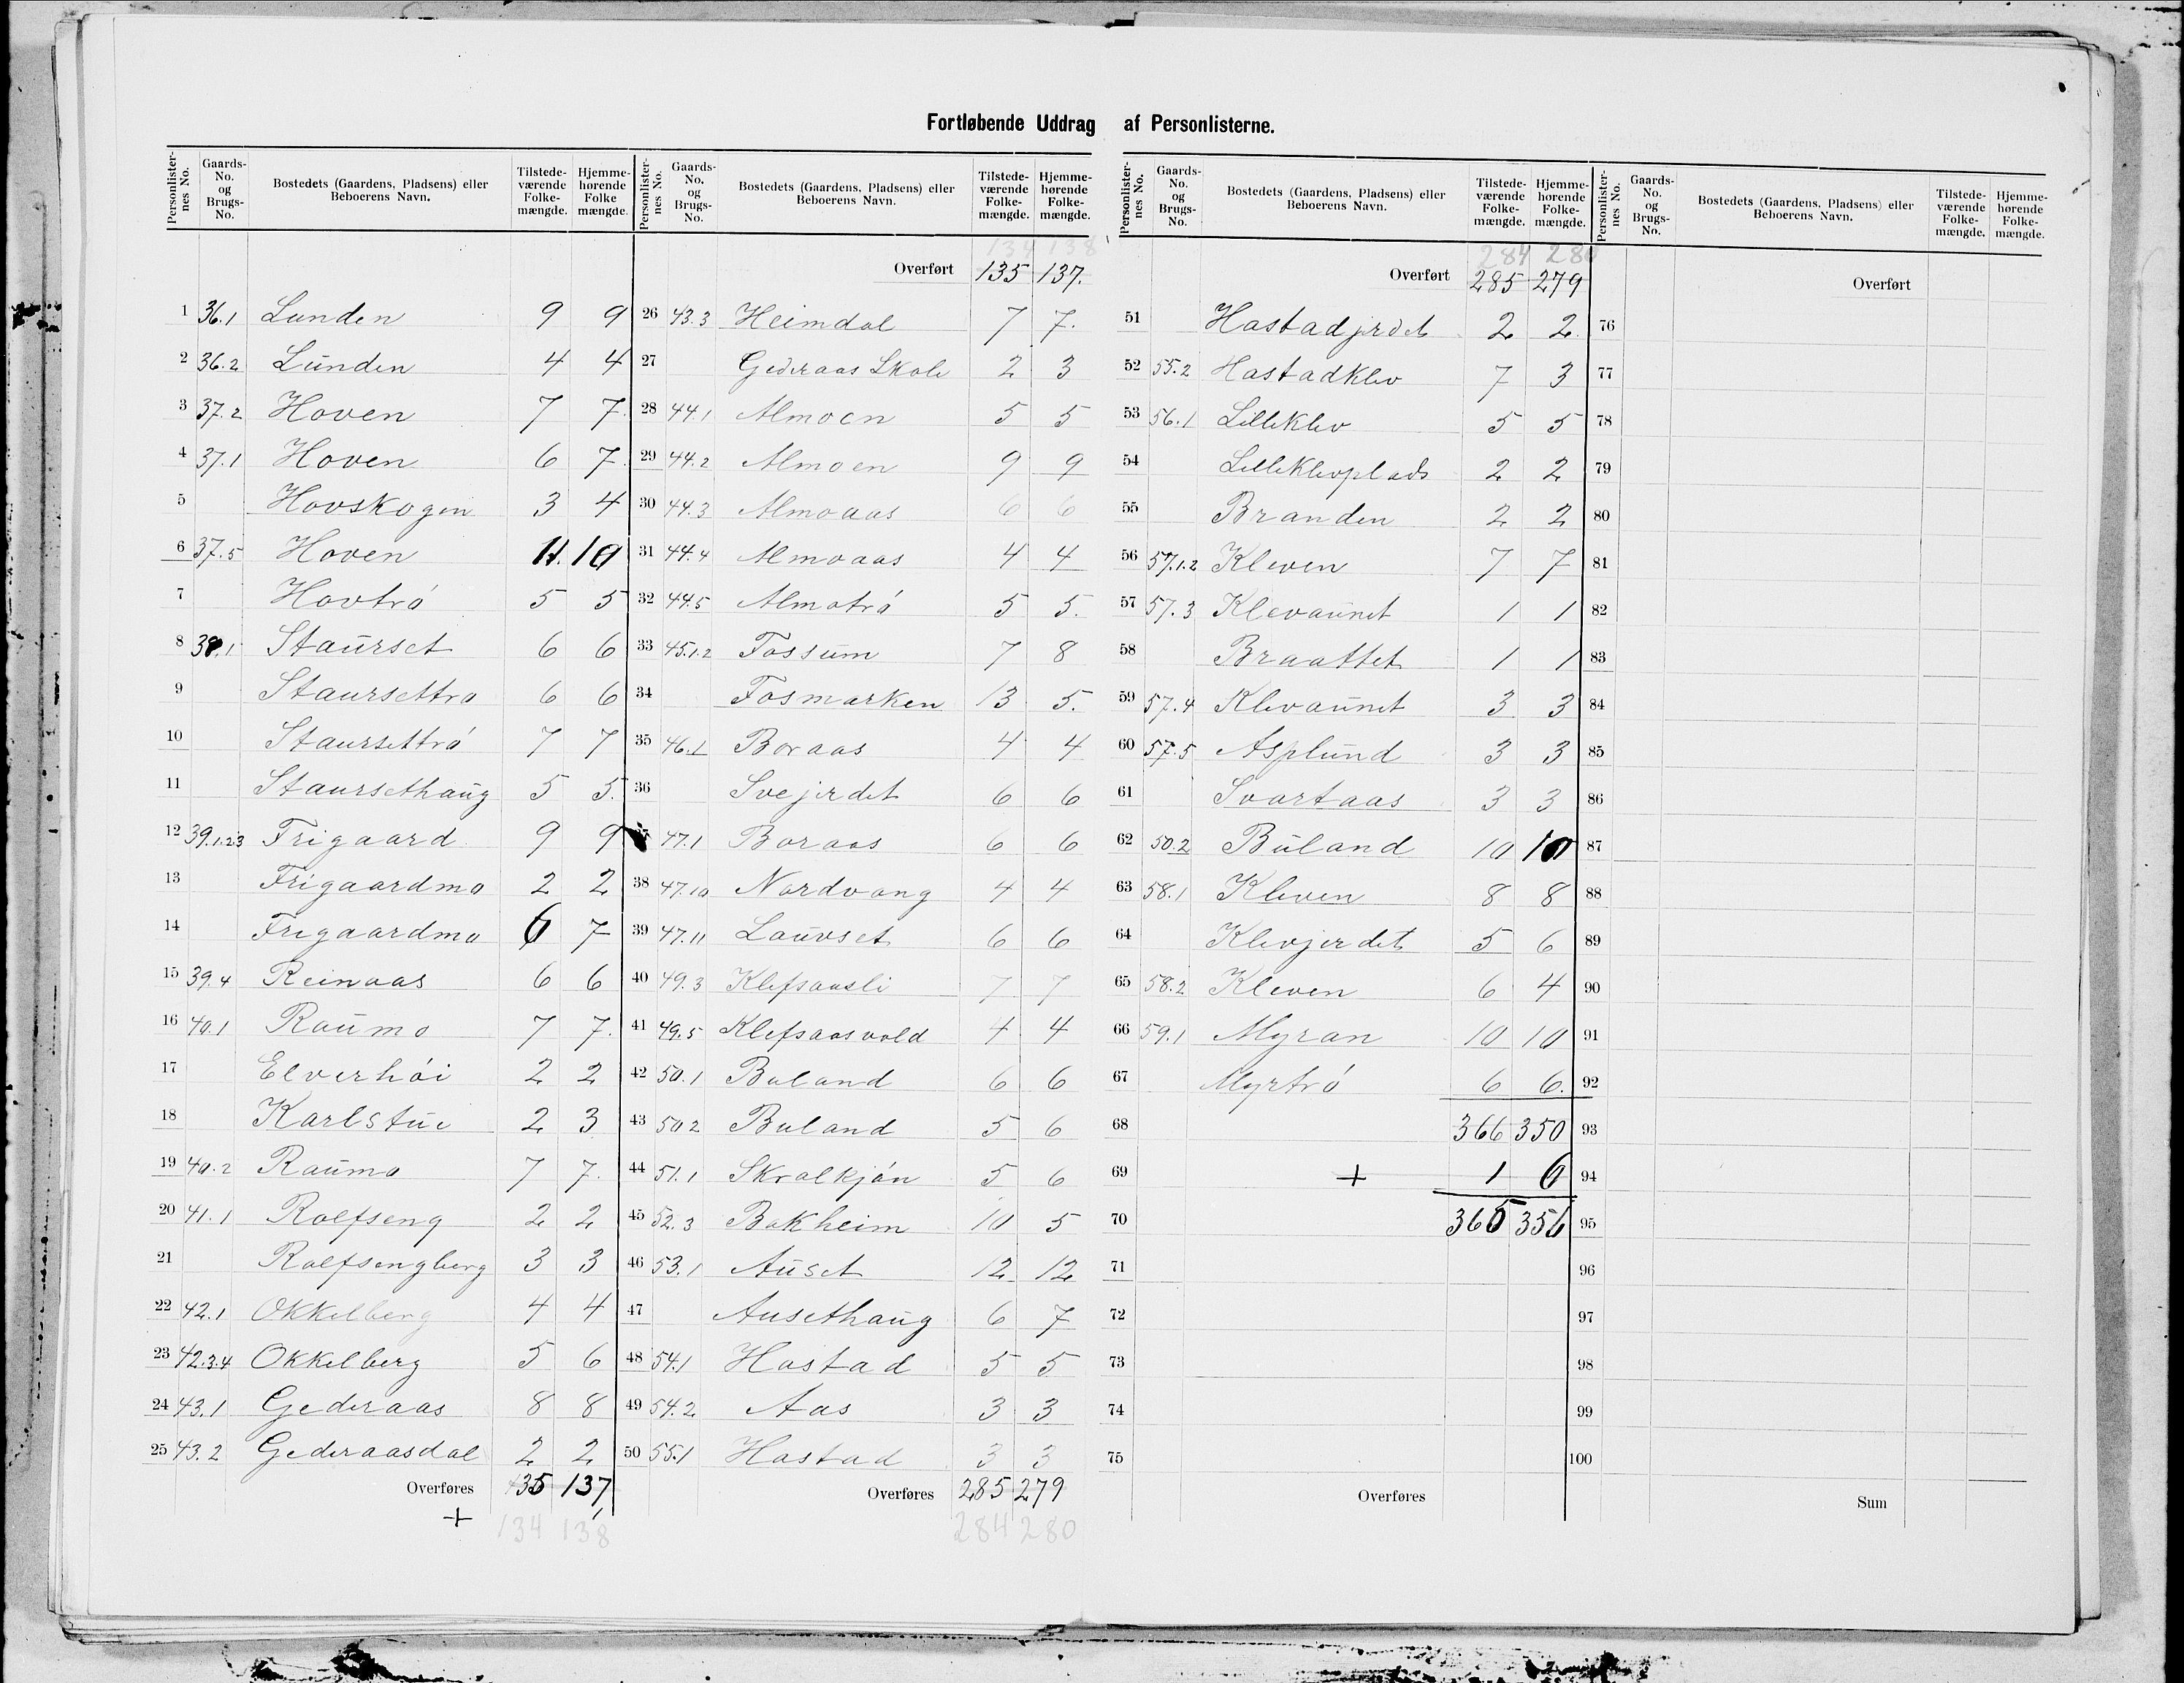 Fortløbende Uddrag af Personlisterne.
Personlisternes No. Gaards-No. og Brugs-No. Bostedets (Gaardens, Pladsens) eller Beboerens Navn. Tilstedeværende Folkemængde. Hjemmehørende Folke mængde.
1 36.1 Lunden 9 9
2 36.2 Lunden 4 4
3 37.2 Hoven 7 7.
4 37.1 Hoven 6 7.
5 Hovskogen 3 4
6 37.5 Hoven 11. 10
7 Hovtrø 5 5
8 38.1 Staurset 6 6
9 Staursettrø 6 6
10 Staursettrø 7 7
11 Staursethaug 5 5.
12 39.1.2.3 Frigaard 9 9
13 Frigaardmo 2 2
14 Frigaardmo 6 7
15 39.4 Reinaas 6 6
16 40.1 Raumo 7 7.
17 Elverhøi 2 2
18 Karlstue 2 3
19 40.2 Raumo 7 7.
20 41.1 Rolfseng 2 2
21 Rolfsengberg 3 3
22 42.1 Okkelberg 4 4
23 42.3.4 Okkelberg 5 6
24 43.1 Gederaas 8 8
25 43.2 Gederaasdal 2 2
Overføres 135 137
+ 134 138
Personlisternes No. Gaards-No. og Brugs-No. Bostedets (Gaardens, Pladsens) eller Beboerens Navn. Tilstedeværende Folkemængde. Hjemmehørende Folkemængde.
134 138
Overført 135 137.
26 43.3 Heimdal 7 7.
27 Gederaas Skole 2 3
28 44.1 Almoen 5 5
29 44.2 Almoen 9 9
30 44.3 Almoaas 6 6
31 44.4 Almoaas 4 4
32 44.5 Almotrø 5 5.
33 45.1.2 Fossum 7 8
34 Fosmarken 13 5.
35 46.1 Boraas 4 4
36 Svejerdet 6 6
47.1 Boraas 6 6
38 47.10 Nordvang 4 4
39 47.11 Lauvset 6 6
40 49.3 Klefsaasli 7 7
41 49.5 Klefsaasvold 4 4
42 50.1 Buland 6 6
43 50.2 Buland 5 6
44 51.1 Skralkjøn 5 6
45 52.3 Bakheim 10 5
46 53.1 Auset 12 12
47 Ausethaug 6 7
48 54.1 Hastad 5 5
49 54.2 Aas 3 3
50 55.1 Hastad 3 3
Overføres 285 279
284 280
Personlisternes No. Gaards-No. og Brugs-No. Bostedets (Gaardens, Pladsens) eller Beboerens Navn. Tilstedeværende Folkemængde. Hjemmehørende Folkemængde.
284 280
Overført 285 279
51 Hastadjerdet 2 2.
52 55.2 Hastadklev 7 3
53 56.1 Lilleklev 5 5
54 Lilleklevplads 2 2
55 Branden 2 2
56 57.1.2 Kleven 7 7
57 57.3 Klevaunet 1 1
58 Braattet 1 1
59 57.4 Klevaunet 3 3
60 57.5 Asplund 3 3
61 Svartaas 3 3
62 50.2 Buland 10 10
63 58.1 Kleven 8 8
64 Klevjerdet 5 6
65 58.2 Kleven 6 4
66 59.1 Myran 10 10
67 Myrtrø 6 6.
68 366 350
69 + 1 6
70 365 356
71
72
73
74
75
Overføres
Personlisternes No. Gaards-No. og Brugs-No. Bostedets (Gaardens, Pladsens) eller Beboerens Navn. Tilstedeværende Folkemængde. Hjemmehørende Folkemængde.
Overført
76
77
78
79
80
81
82
83
84
85
86
87
88
89
90
91
92
93
94
95
96
97
98
99
100
Sum